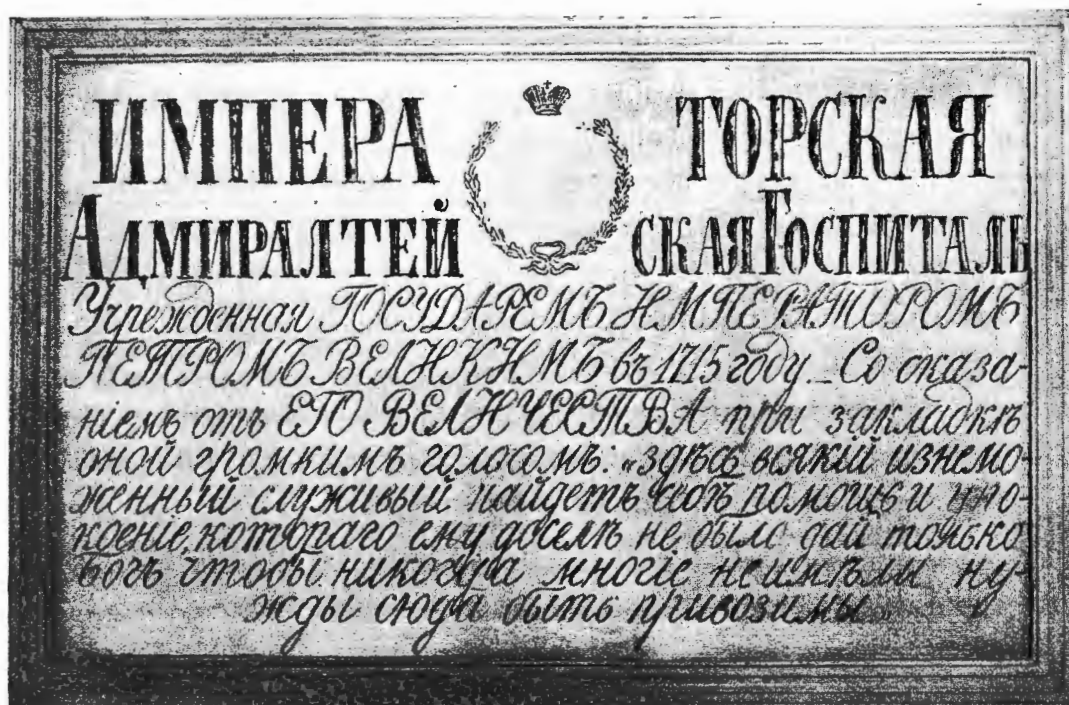 ИМПЕРА ТОРСКАЯ
АДМИРАЛТЕЙ СКАЯ ГОСПИТАЛЬ
Учрежденная ГОСУДАРЕМЪ ИМПЕРАТОРОМЪ
ПЕТРОМЪ ВЕЛИКИМЪ въ 1715 году. Со сказа-
ніемъ отъ ЕГО ВЕЛИЧЕСТВА при закладкѣ
оной громкимъ голосомъ: „здѣсь всякій изнемо-
женный служивый найдетъ себѣ помощь и упо-
коеніе, котораго ему доселѣ не было дай только
Богъ чтобы никогда многіе не имѣли ну-
жды сюда быть привозимы“